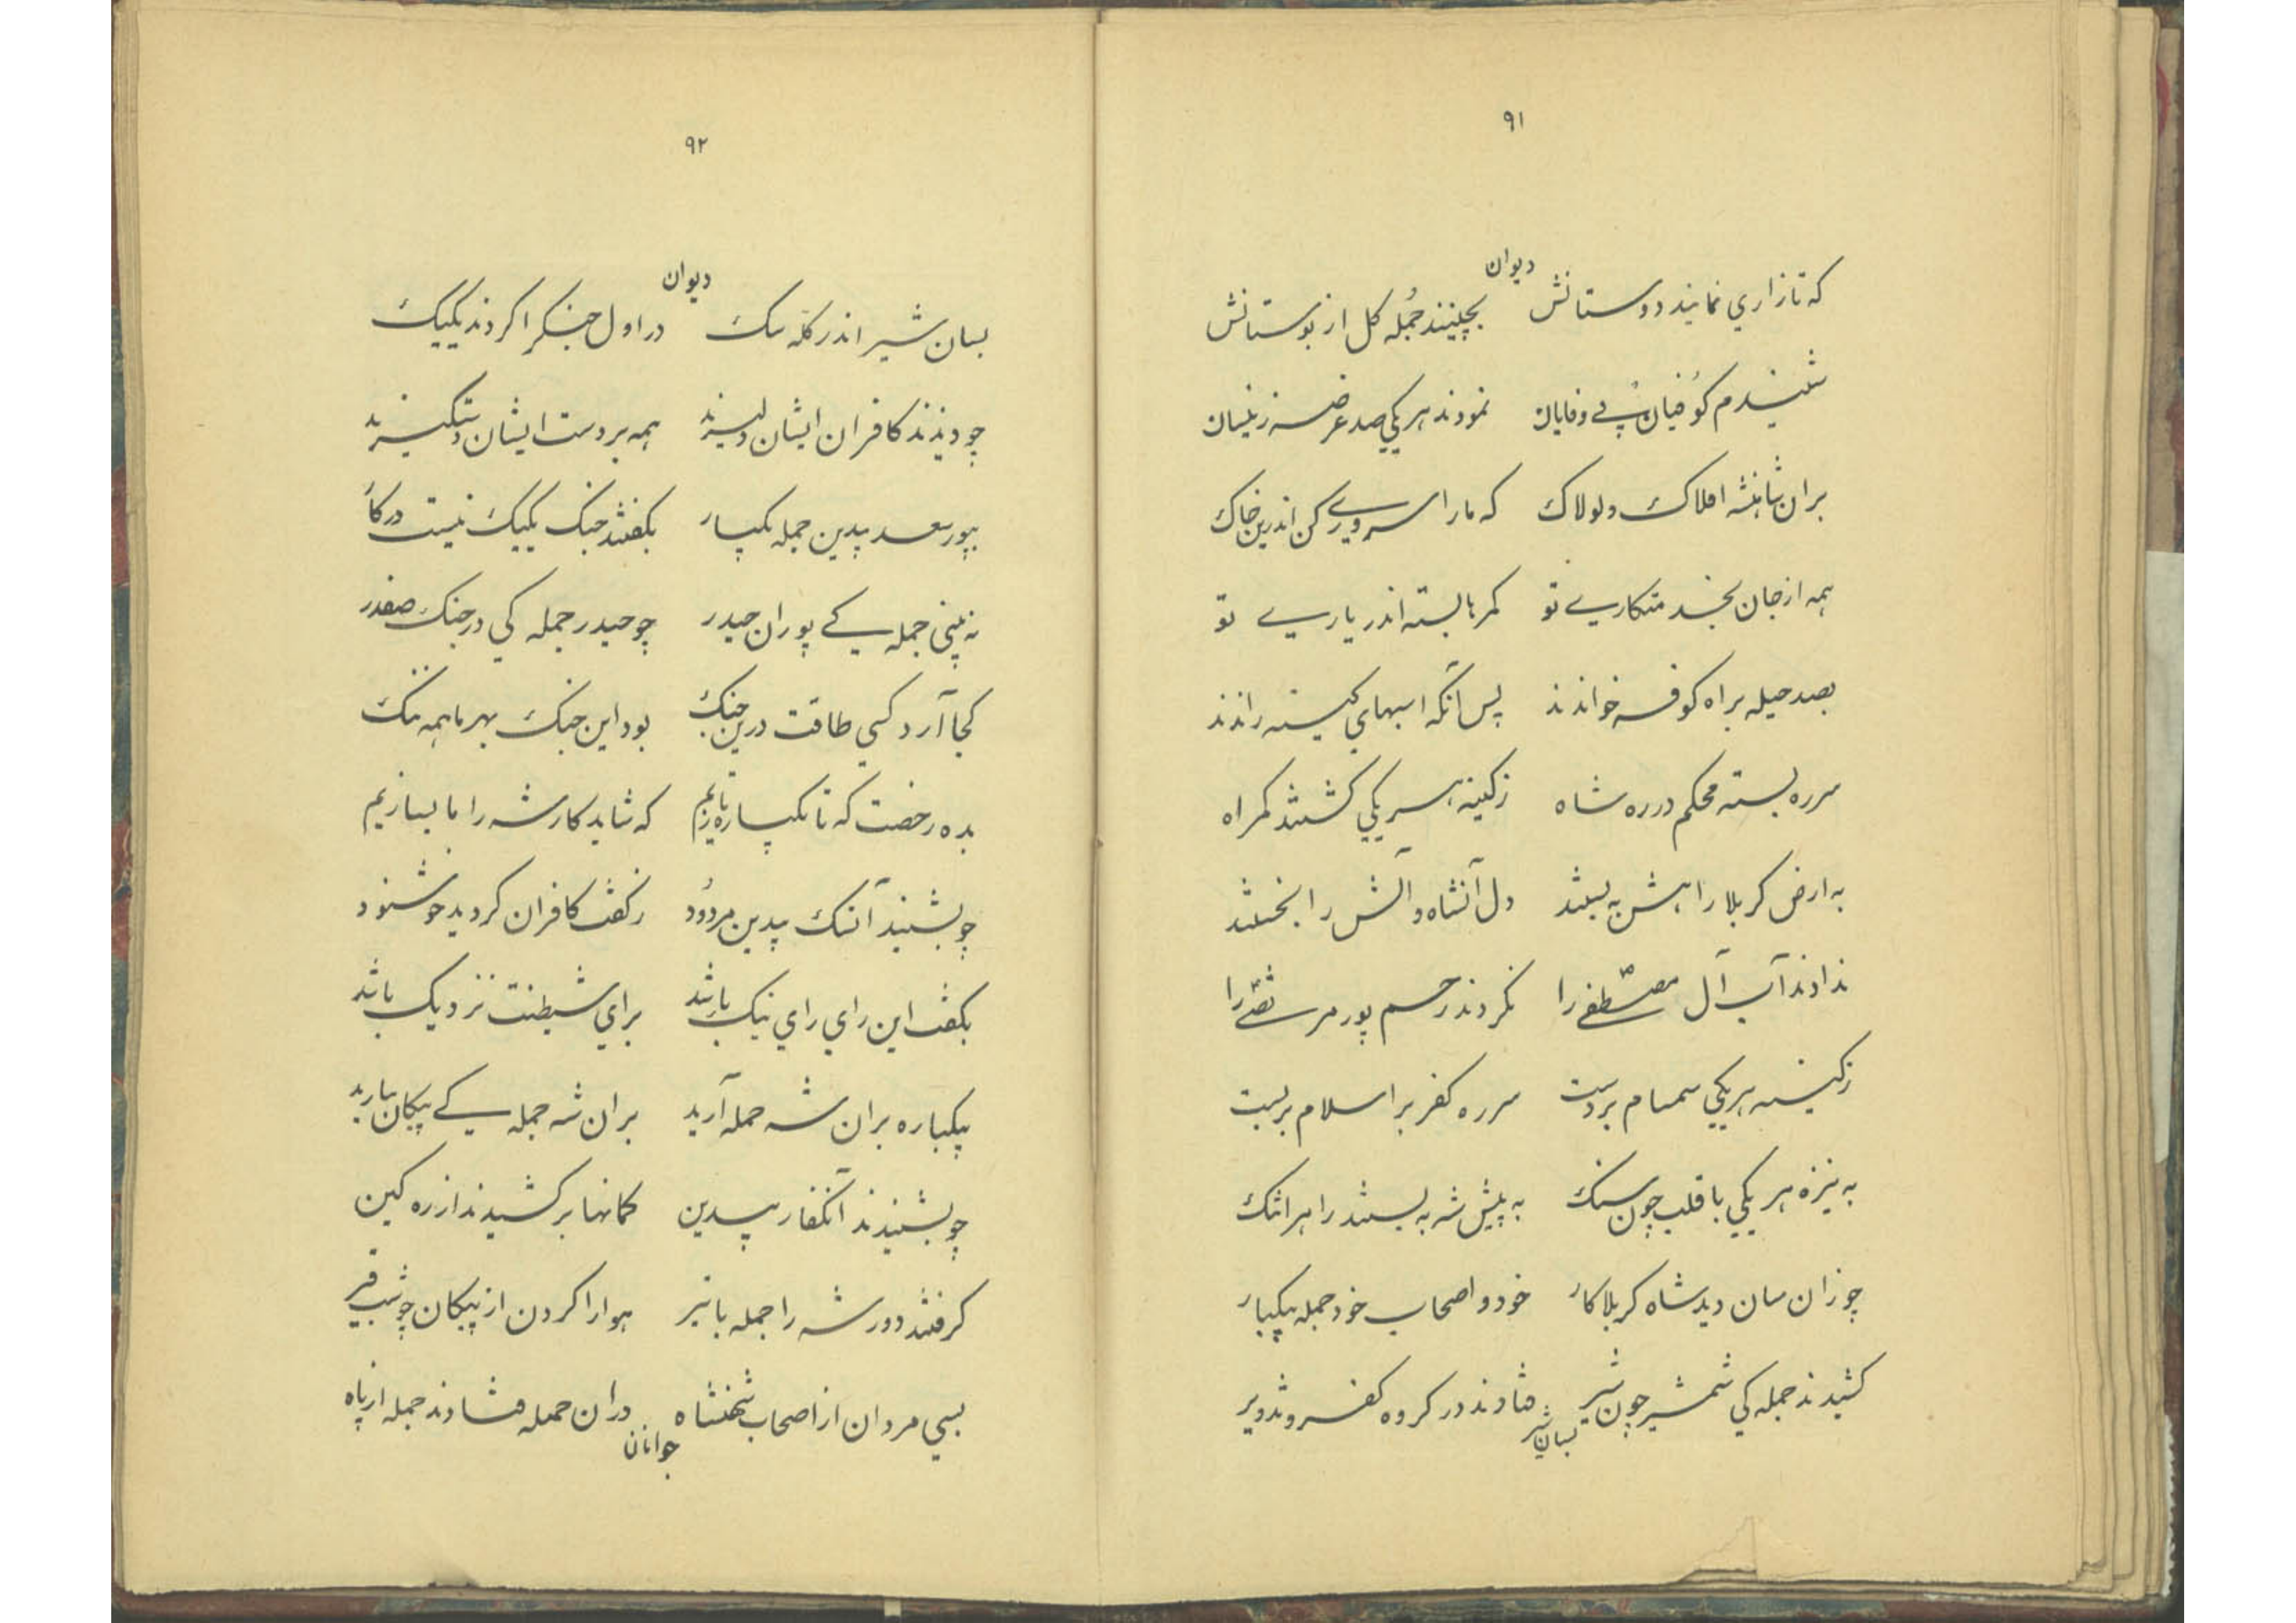 ۹۱
دیوان
که تا زاری نمایند دوستانش بچینند جُمله کل از بوستانش
شنیدم کوُفیان بی وفایان نمودند هر یکی صد عرضه زینسان
بران شاهنشه افلاک و لولاک که مارا سروری کن اندرین خاک
همه از جان بخدمتکاری تو کمرها بسته اندر یاری تو
بصد حیله براه کوفه خواندند پس آنکه اسبهای کینه راندند
سرره بسته محکم در ره شاه زکینه هر یکی کشتند کمراه
به ارض کربلا راهش به بستند دل آنشاه و آلش را بخستند
ندادند آب آل مصطفی را نکردند رحم پور مرتضی را
زکینه هر یکی صمصام بردست سرره کفر بر اسلام بربست
به نیزه هر یکی با قلب چون سنک به پیش شه به بستند راه
چو زان سان دید شاه کربلا کار خود و اصحاب خود جمله بیکبار
کشیدند جمله کی شمشیر چون شیر فتادند در کروه کفر و تزویر
بسان شیر
۹۲
دیوان
بسان شیر اندر کلّه سک در اول جنکرا کردند یکیک
چو دیدند کافران ایشان دلیرند همه بر دست ایشان دستکیرند
بپور سعد بیدین جمله یکبار بکفتند جنک یکیک نیست در کار
نه بینی جمله کی پوران حیدر چو حیدر جمله کی در جنک صفدر
کجا آرد کسی طاقت درین جنک بود این جنک بهر ما همه ننک
بده رخصت که تا یکباره تازیم که شاید کار شه را ما بسازیم
چو بشنید آنسک بیدین مردُود زکفت کافران کردید خوشنود
بکفت این رای رای نیک باشد برای شیطنت نزدیک باشد
بیکباره بران شه حمله آرید بران شه جمله کی پیکان ببارید
چو بشنیدند آنکفار بیدین کمانها برکشیدند از ره کین
کرفتند دور شه را جمله با تیر هوا را کردن از پیکان چو شب قیر
بسی مردان از اصحاب شهنشاه دران حمله فتادند جمله از پاه
جوانان